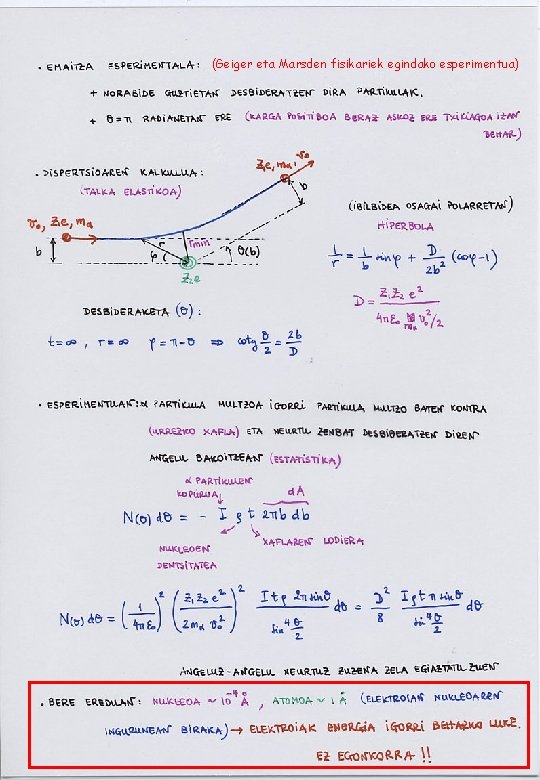 • EMAITZA ESPERIMENTALA: (Geiger eta Marsden fisikariek egindako esperimentua)
+ NORABIDE GUZTIETAN DESBIDERATZEN DIRA PARTIKULAK.
+ θ=π RADIANETAN ERE (KARGA POSITIBOA BERAZ ASKOZ ERE TXIKIAGOA IZAN
BEHAR)
• DISPERTSIOAREN KALKULUA:
(TALKA ELASTIKOA)
Z₁e, mα, v₀
b
v₀, Z₁e, mα
b
r
rmin
φ
θ(b)
Z₂e
(IBILBIDEA OSAGAI POLARRETAN)
HIPERBOLA
1/r = 1/b sinφ + D/2b² (cosφ-1)
D = Z₁Z₂e² / 4πε₀ mα v₀²/2
DESBIDERAKETA (θ):
t=∞, r=∞ φ=π-θ ⇒ cotg θ/2 = 2b/D
• ESPERIMENTUAN: α PARTIKULA MULTZOA IGORRI PARTIKULA MULTZO BATEN KONTRA
(URREZKO XAFLA) ETA NEURTU ZENBAT DESBIDERATZEN DIREN
ANGELU BAKOITZEAN (ESTATISTIKA)
α PARTIKULEN
KOPURUA
dA
N(θ)dθ = - I ρ t 2πb db
NUKLEOEN
DENTSITATEA
XAFLAREN LODIERA
N(θ)dθ = (1/4πε₀)² (Z₁Z₂e²/2mα v₀²)² Itρ 2π sinθ / sin⁴ θ/2 dθ = D²/8 Iρtπ sinθ / sin⁴ θ/2 dθ
ANGELUZ-ANGELU NEURTUZ ZUZENA ZELA EGIAZTATU ZUEN
• BERE EREDUAN: NUKLEOA ~ 10⁻⁴ Å, ATOMOA ~ 1 Å (ELEKTROIAK NUKLEOAREN
INGURUNEAN BIRAKA) → ELEKTROIAK ENERGIA IGORRI BEHARKO LUKE.
EZ EGONKORRA!!